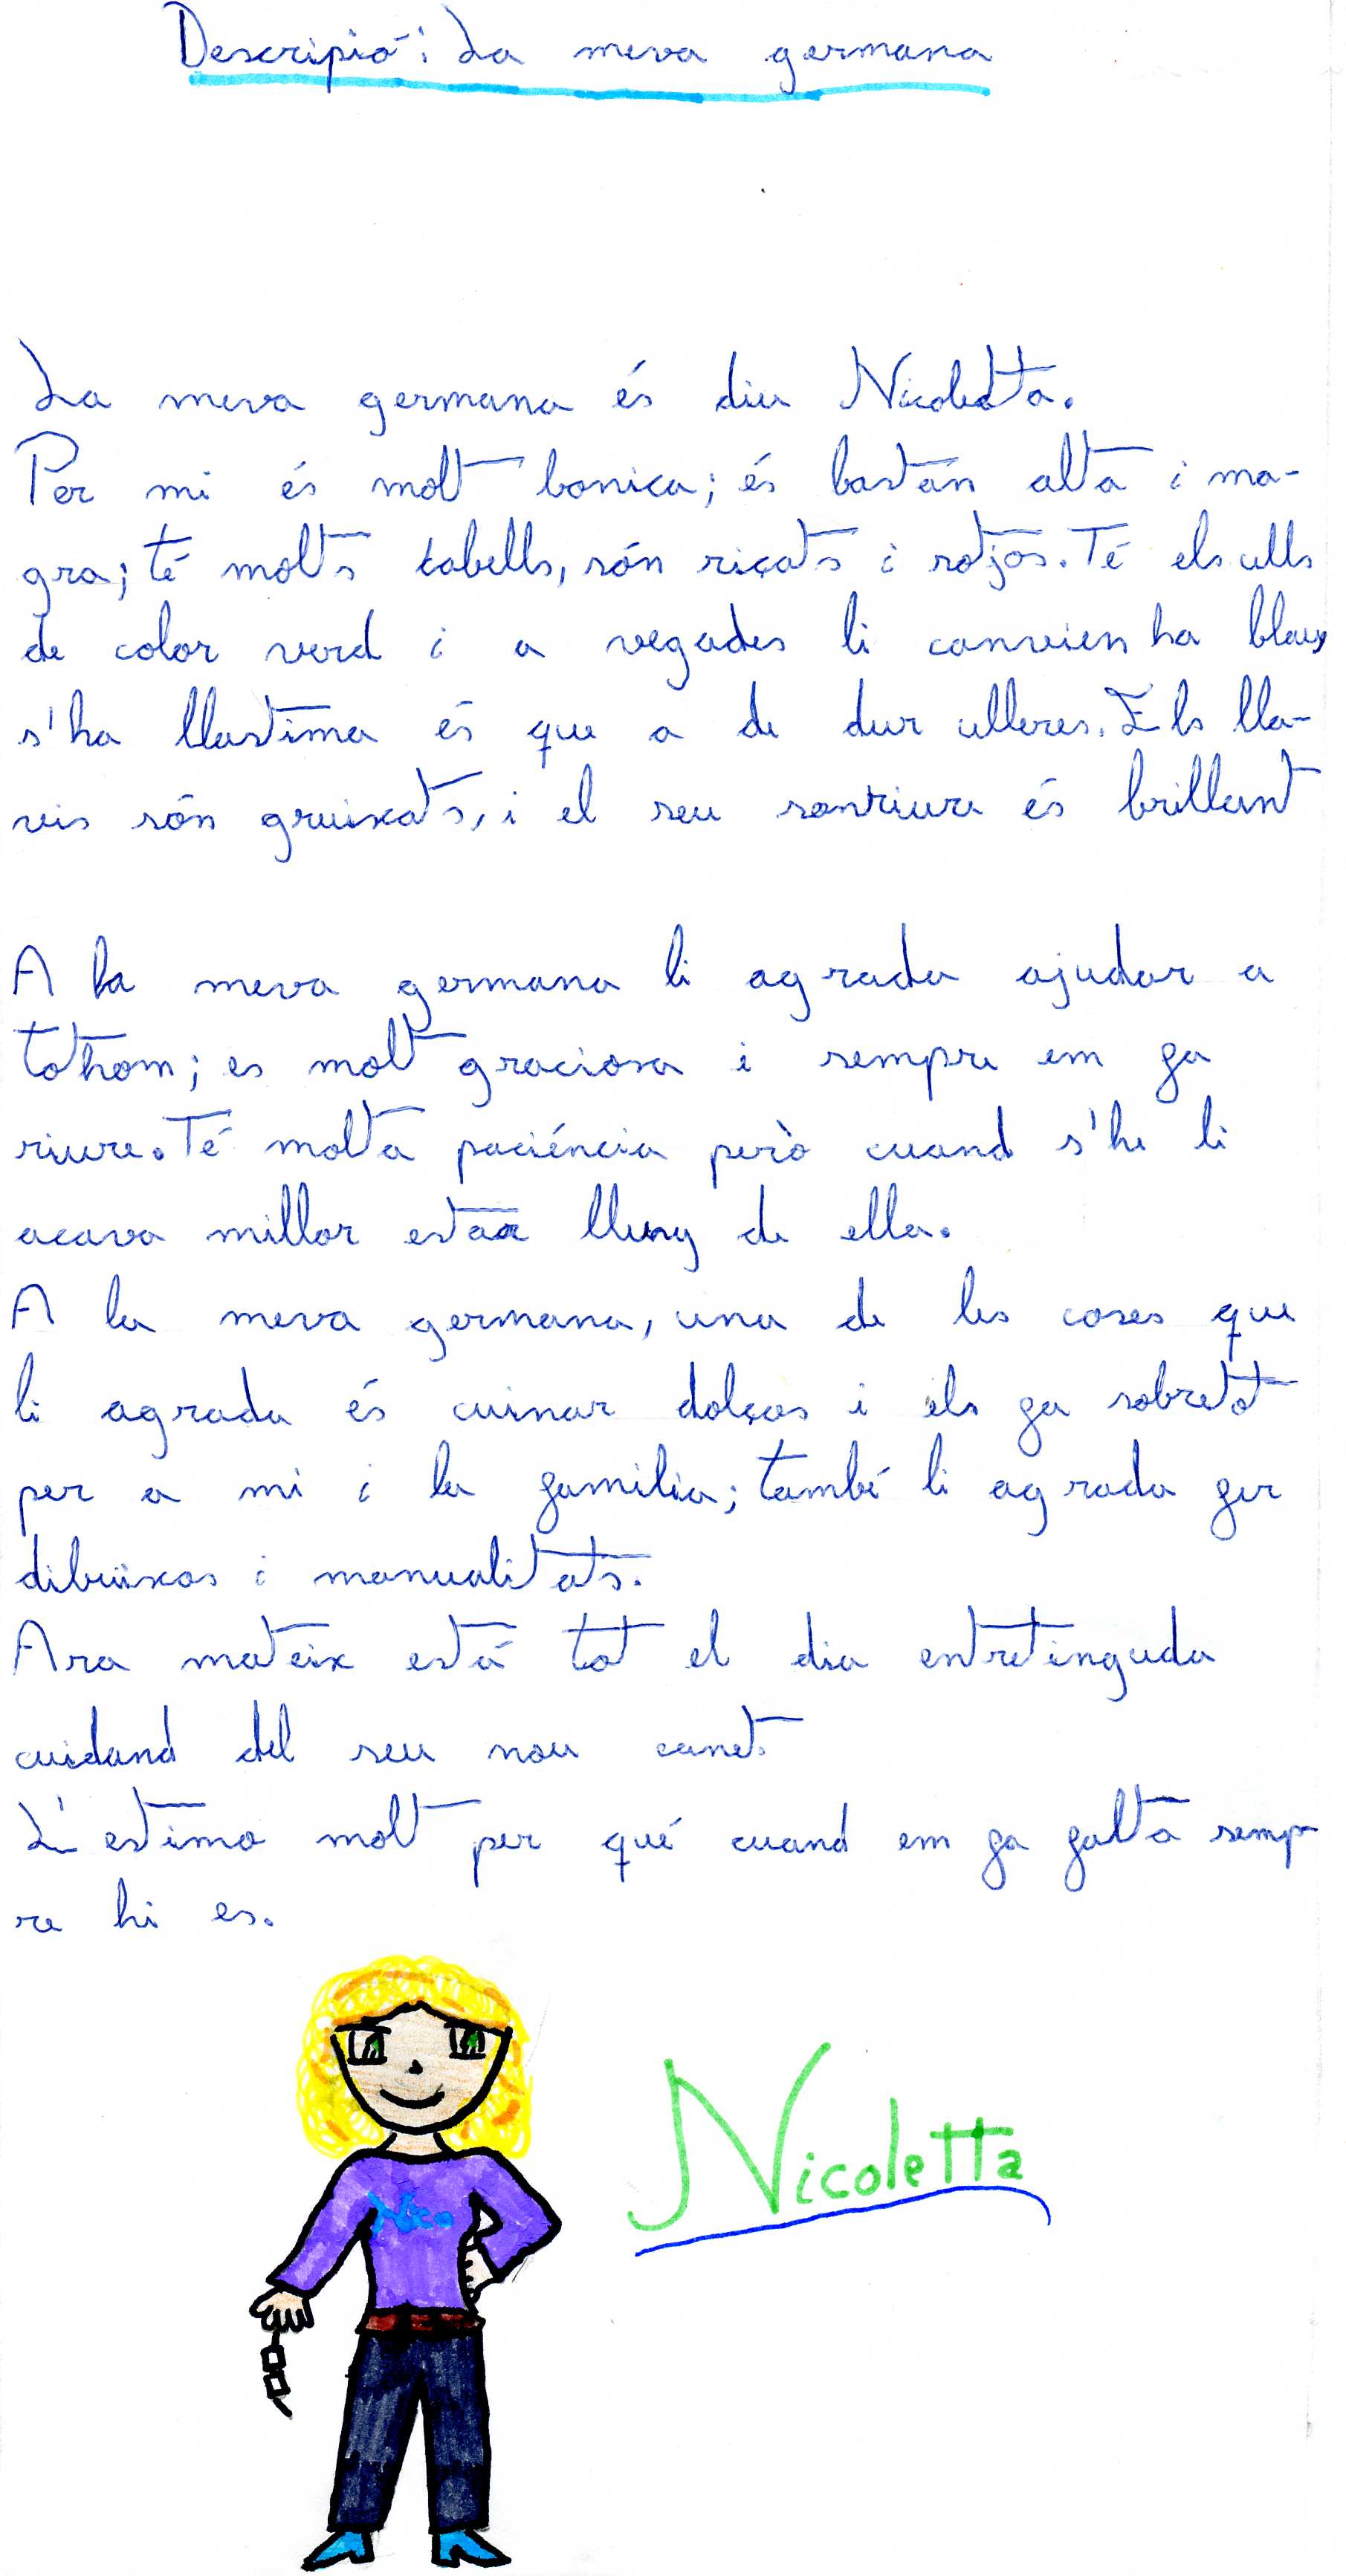 Descripió: La meva germana
La meva germana és diu Nicoletta.
Per mi és molt bonica; és bastán alta i ma-
gra; té molts cabells, són riçats i rotjos. Té els ulls
de color verd i a vegades li canvien ha blaus
s'ha llastima és que a de dur ulleres. Els lla-
vis són gruixats, i el seu sonriure és brillant
A la meva germana li agrada ajudar a
tothom; es molt graciosa i sempre em fa
riure. Té molta paciéncia però cuand s'he li
acava millor estar lluny de ella.
A la meva germana, una de les coses que
li agrada és cuinar dolços i els fa sobretot
per a mi i la familia; també li agrada fer
dibuixos i manualitats.
Ara mateix está tot el dia entretinguda
cuidand del seu nou canet.
L'estimo molt per qué cuand em fa falta semp
re hi es.
Nicoletta
Nico